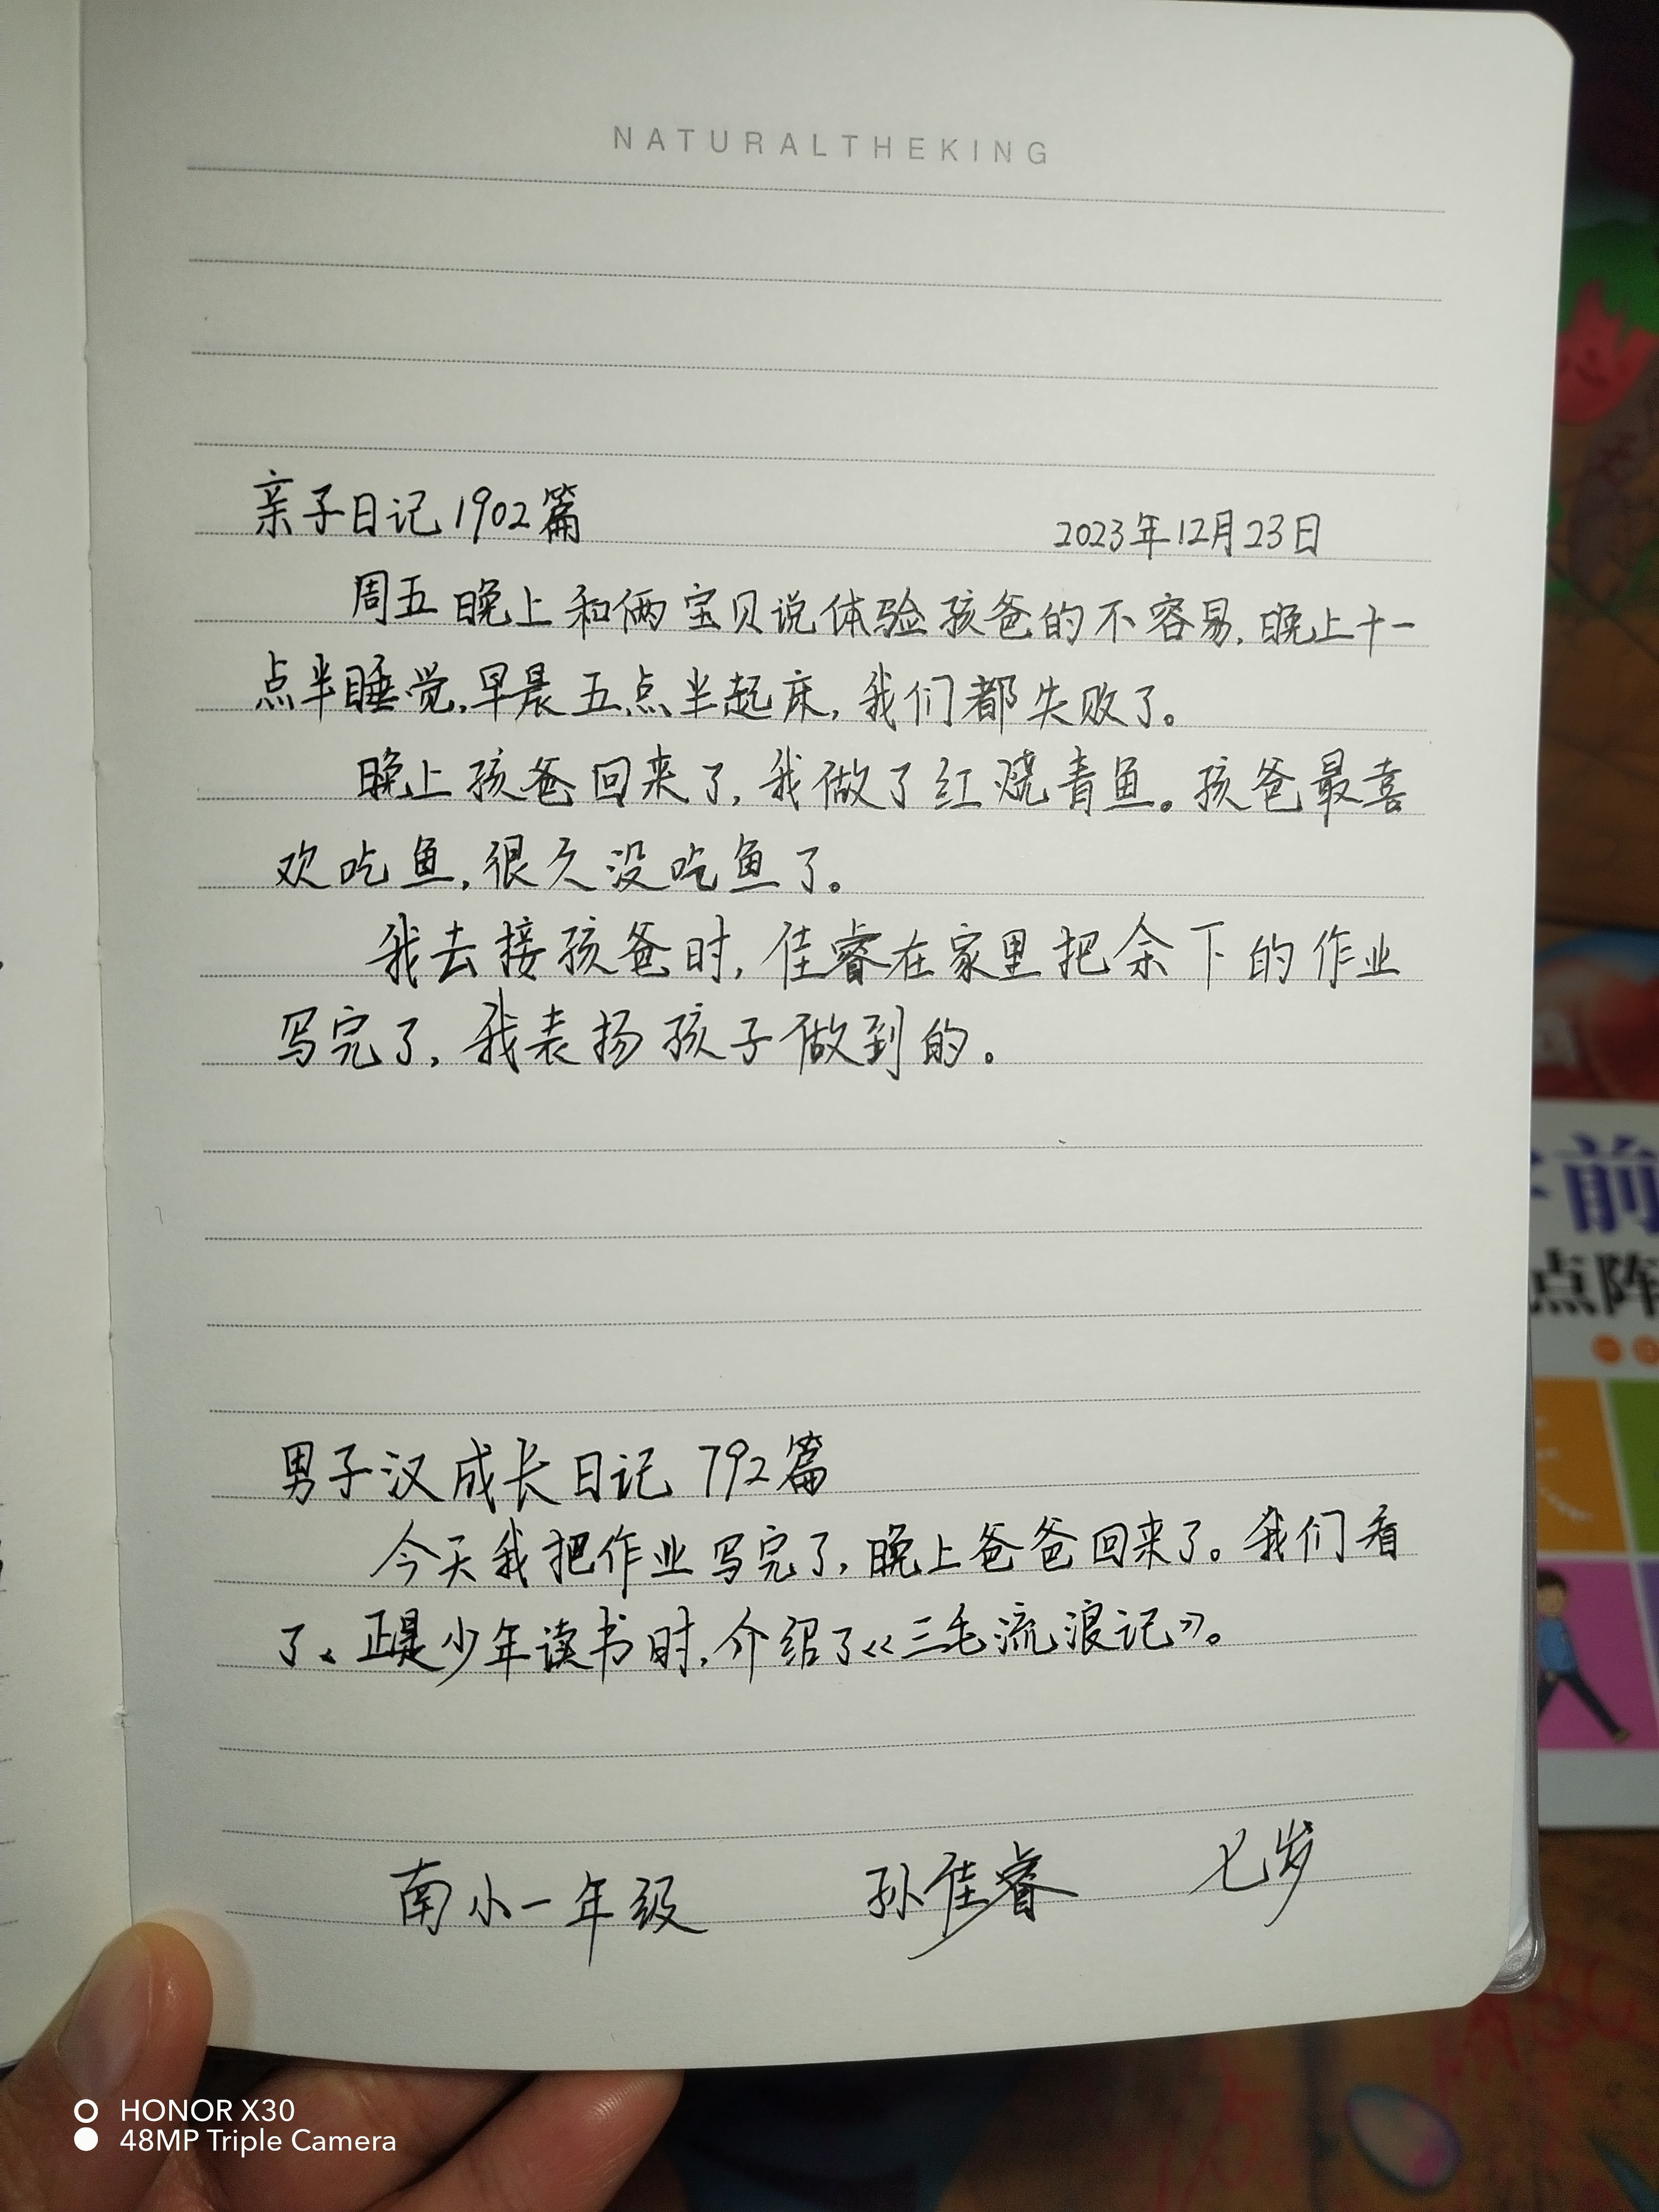 NATURALTHEKING
亲子日记1902篇 2023年12月23日
周五晚上和俩宝贝说体验孩爸的不容易,晚上十一
点半睡觉,早晨五点半起床,我们都失败了。
晚上孩爸回来了,我做了红烧青鱼。孩爸最喜
欢吃鱼,很久没吃鱼了。
我去接孩爸时,佳睿在家里把余下的作业
写完了,我表扬孩子做到的。
男子汉成长日记 792篇
今天我把作业写完了,晚上爸爸回来了。我们看
了《正是少年读书时,介绍了《三毛流浪记》。
南小一年级 孙佳睿 七岁
前
点阵
HONOR X30
48MP Triple Camera